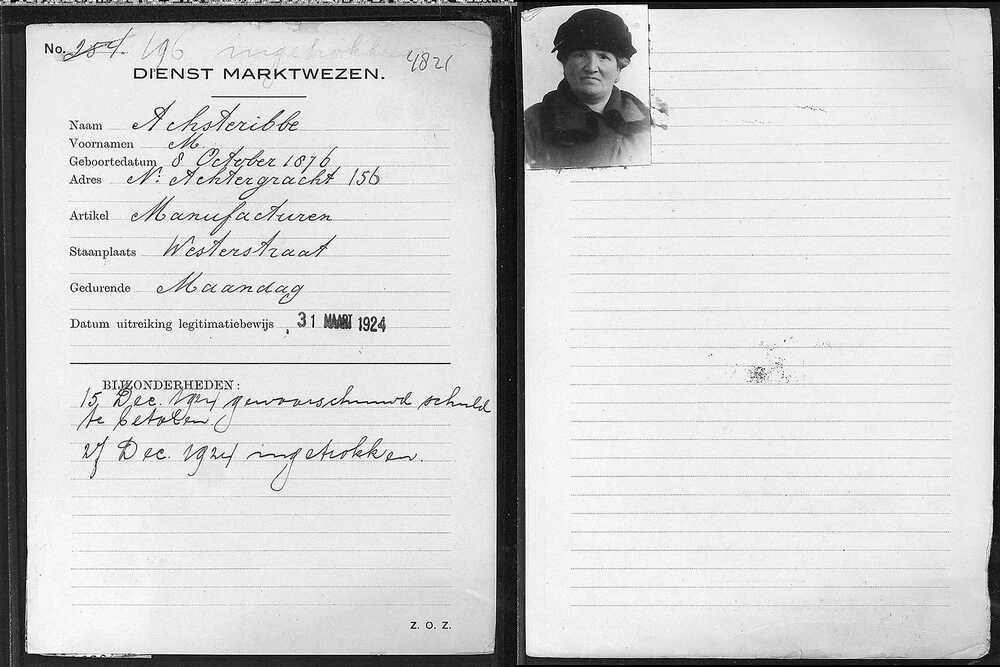 No. 284. 196 ingetrokken 4821
DIENST MARKTWEZEN.
Naam Achsteribbe
Voornamen M.
Geboortedatum 8 October 1876
Adres N: Achtergracht 156
Artikel Manufacturen
Staanplaats Westerstraat
Gedurende Maandag
Datum uitreiking legitimatiebewijs 31 MAART 1924
BIJZONDERHEDEN:
15 Dec. 1924 gewaarschuwd schuld
te betalen
27 Dec. 1924 ingetrokken.
Z. O. Z.